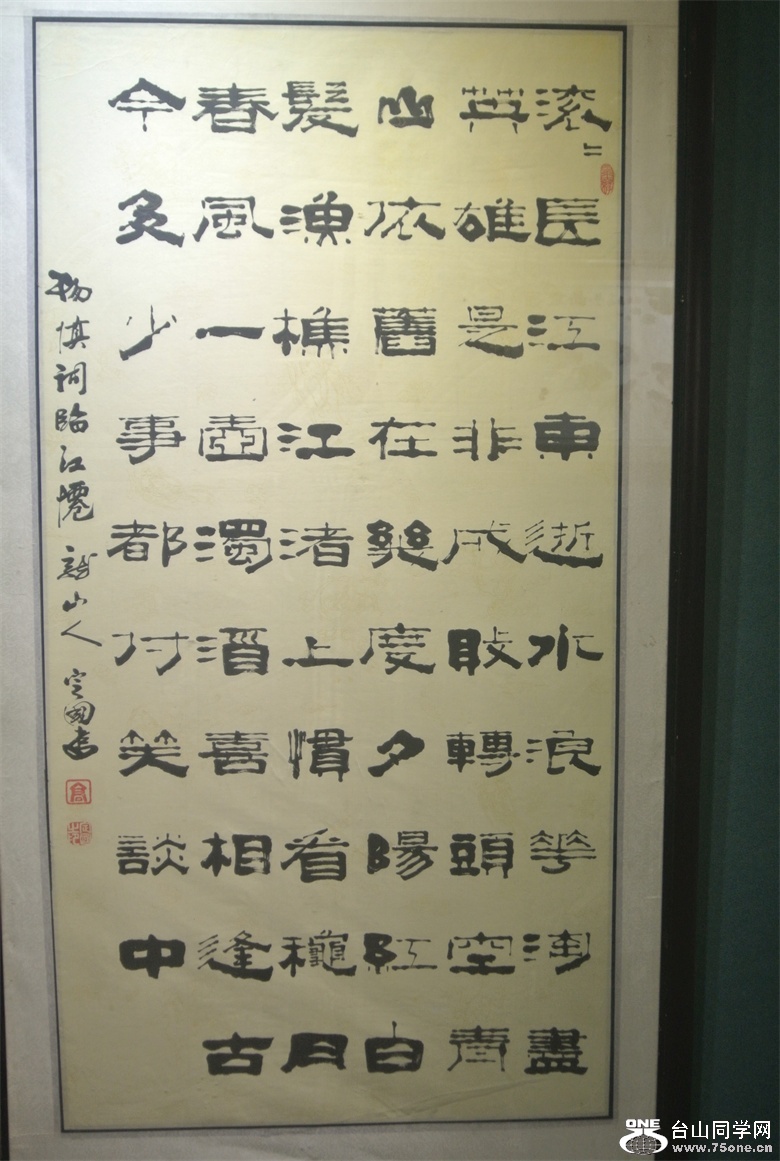 滚〻長江東逝水浪華淘盡
英雄是非成敗轉頭空青
山依舊在幾度夕陽紅白
髮漁樵江渚上慣看穐月
春風一壺濁酒喜相逢古
今多少事都付笑談中
楊慎詞臨江僊 龍山人 定國書
ONE 台山同学网
www.75one.cn